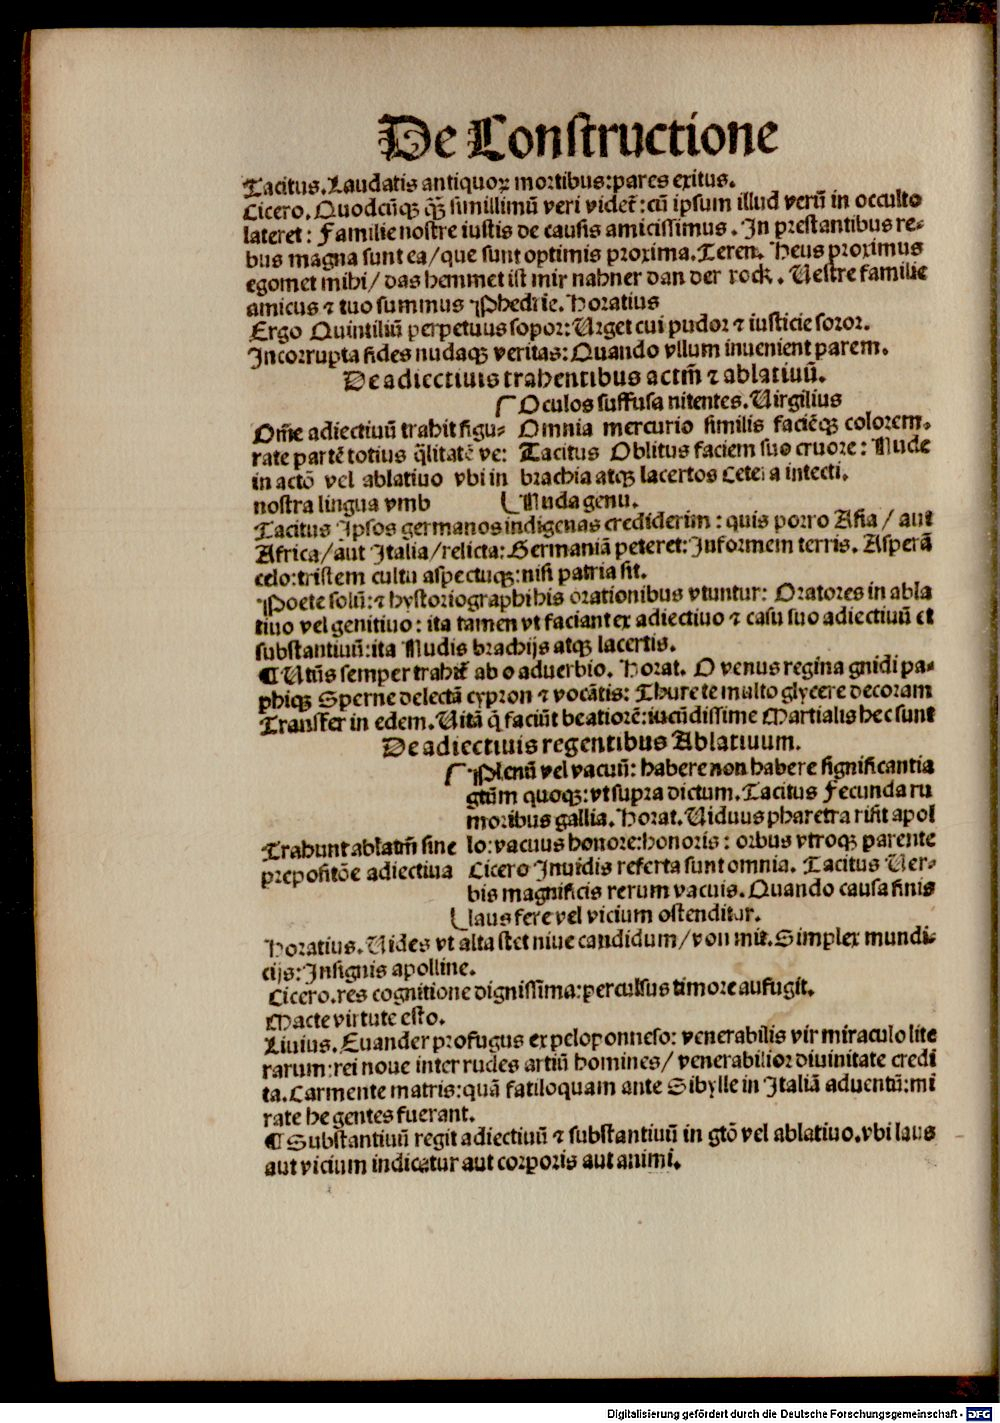 De Constructione
Tacitus. Laudatis antiquoꝝ mortibus: pares exitus.
Cicero. Quodcũqꝫ qꝫ̃ simillimũ veri videt̃: cũ ipsum illud verũ in occulto
lateret: Familie nostre iustis de causis amicissimus. In prestantibus re⸗
bus magna sunt ea/ que sunt optimis proxima. Teren. Heus proximus
egomet mihi/ das hemmet ist mir nahner dan der rock. Uestre familie
amicus ⁊ tuo summus Phedrie. Horatius
Ergo Quintiliũ perpetuus sopor: Urget cui pudor ⁊ iusticie soror.
Incorrupta fides nudaqꝫ veritas: Quando vllum inuenient parem.
De adiectiuis trahentibus actm̃ ⁊ ablatiuũ.
Oculos suffusa nitentes. Uirgilius
Om̃e adiectiuũ trahit figu⸗ Omnia mercurio similis faciẽqꝫ colorem.
rate partẽ totius q̃litatẽ ve: Tacitus Oblitus faciem suo cruore: Nude
in actõ vel ablatiuo vbi in brachia atqꝫ lacertos Cetera intecti.
nostra lingua vmb Nuda genu.
Tacitus Ipsos germanos indigenas crediderim: quis porro Asia / aut
Africa/ aut Italia/ relicta: Germaniã peteret: Informem terris. Asperã
celo: tristem cultu aspectuqꝫ: nisi patria sit.
Poete solũ: ⁊ hystoriographi his orationibus vtuntur: Oratores in abla
tiuo vel genitiuo: ita tamen vt faciant ex adiectiuo ⁊ casu suo adiectiuũ et
substantiuũ: ita Nudis brachijs atqꝫ lacertis.
¶ Utũs semper trahit̃ ab o aduerbio. Horat. O venus regina gnidi pa⸗
phiqꝫ Sperne delectã cypron ⁊ vocãtis: Thure te multo glycere decoram
Transfer in edem. Uitã q̃ faciũt beatiorẽ: iucũdissime Martialis hec sunt
De adiectiuis regentibus Ablatiuum.
Plenũ vel vacuũ: habere non habere significantia
gtũm quoqꝫ: vt supra dictum. Tacitus Fecunda ru
moribus gallia. Horat. Uiduus pharetra risit apol
Trahunt ablatm̃ sine lo: vacuus honore: honoris: orbus vtroqꝫ parente
prepositõe adiectiua Cicero Inuidis referta sunt omnia. Tacitus Uer⸗
bis magnificis rerum vacuis. Quando causa finis
laus fere vel vicium ostenditur.
Horatius. Uides vt alta stet niue candidum/ von mit. Simplex mundi⸗
cijs: Insignis apolline.
Cicero. res cognitione dignissima: perculsus timore aufugit.
Macte virtute esto.
Liuius. Euander profugus ex peloponneso: venerabilis vir miraculo lite
rarum: rei noue inter rudes artiũ homines/ venerabilior diuinitate credi
ta. Carmente matris: quã fatiloquam ante Sibylle in Italiã aduentũ: mi
rate he gentes fuerant.
¶ Substantiuũ regit adiectiuũ ⁊ substantiuũ in gtõ vel ablatiuo. vbi laus
aut vicium indicatur aut corporis aut animi.
Digitalisierung gefördert durch die Deutsche Forschungsgemeinschaft - DFG